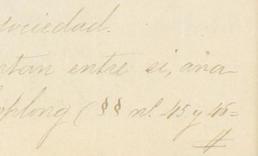 sociedad.
ntan entre si, aña-
oplong (§§ nl. 45 y 46=